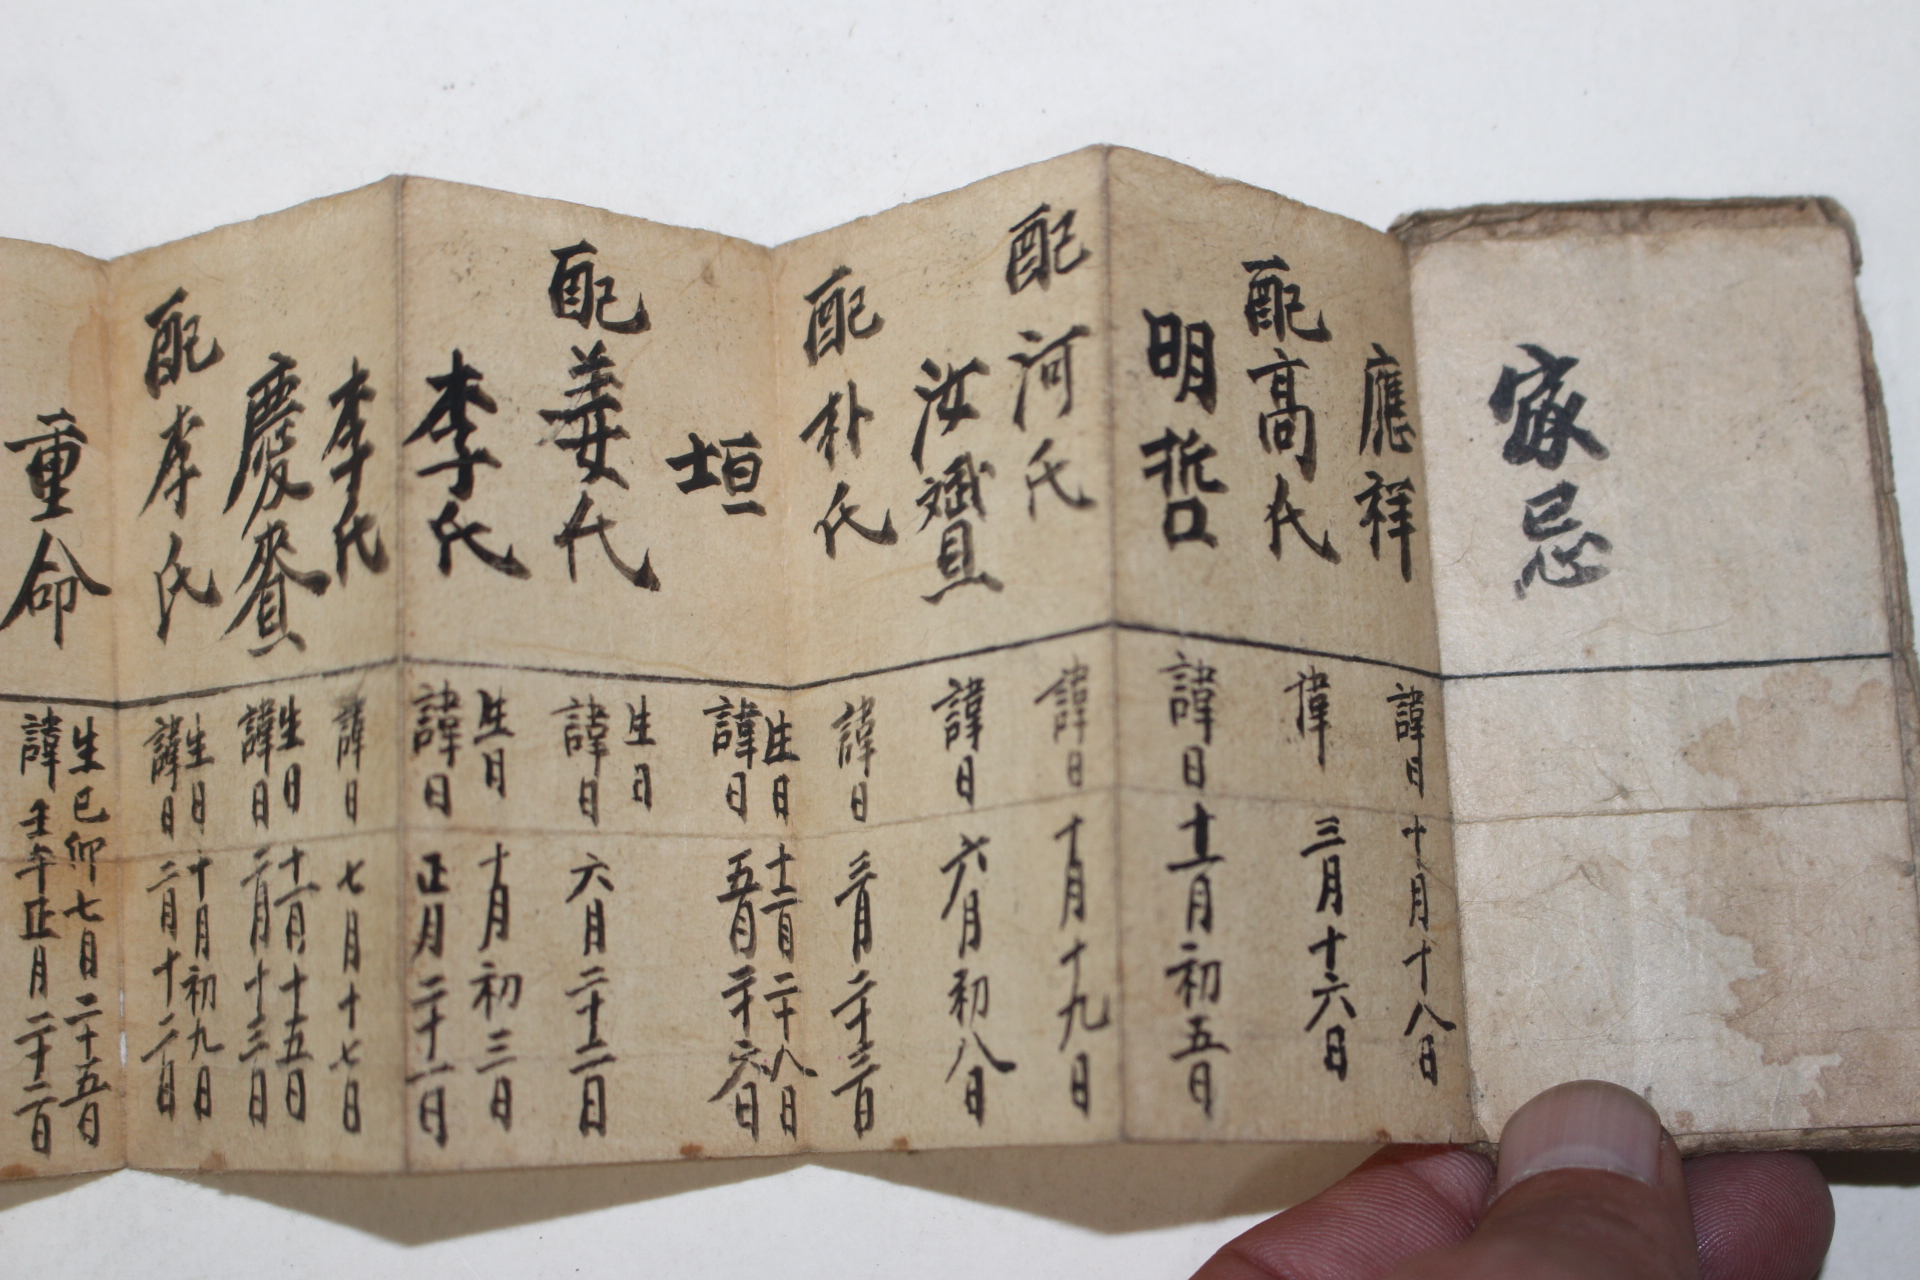 家忌
應祥
諱日 十月十八日
配高氏
諱 三月十六日
明哲
諱日 十一月初五日
配河氏
諱日 十月十九日
汝贇
諱日 六月初八日
配朴氏
諱日 三月二十三日
垣
生日 十一月二十八日
諱日 五月二十六日
配姜氏
生日
諱日 六月二十二日
李氏
生日 十月初三日
諱日 正月二十一日
李氏
諱日 七月十七日
慶賚
生日 十一月十五日
諱日 二月十三日
配李氏
生日 十月初九日
諱日 二月十二日
重命
生己卯七月二十五日
諱壬午正月二十二日